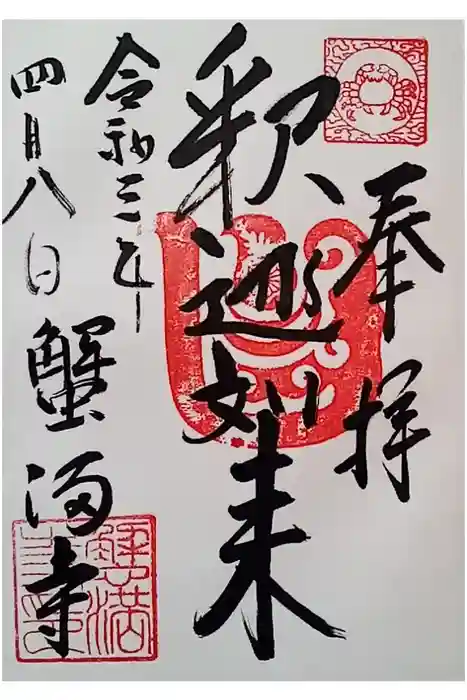 奉拝
釈迦如来
令和三年
四月八日
蟹満寺